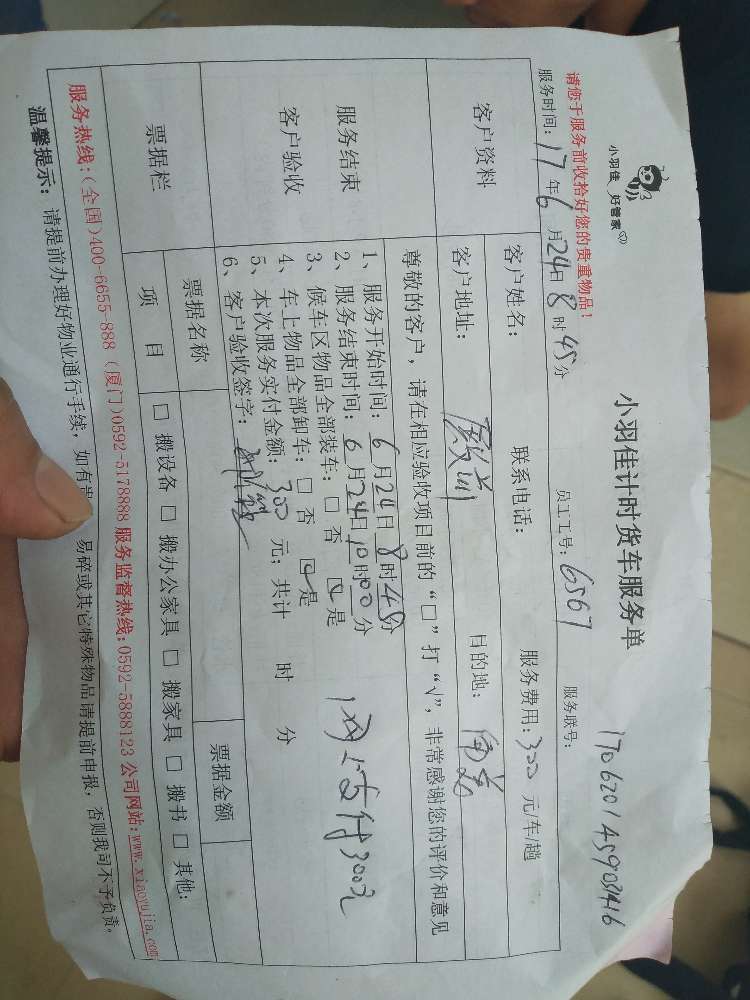 小羽佳 好管家
小羽佳计时货车服务单
170620145903416
请您于服务前收拾好您的贵重物品！
服务时间：17年6月24日8时45分 员工工号：6567 服务联号：
客户资料
客户姓名： 联系电话： 服务费用：300元/车/趟
客户地址： 目的地：
服务结束
客户验收
尊敬的客户，请在相应验收项目前的“□”打“√”，非常感谢您的评价和意见
1、服务开始时间：6月24日8时45分
2、服务结束时间：6月24日10时00分
3、候车区物品全部装车：□ 否 ☑ 是
4、车上物品全部卸车：□ 否 ☑ 是
5、本次服务实付金额：300元；共计 时 分
6、客户验收签字：
支付300元
票据栏
票据名称 票据金额
项 目 □ 搬设备 □ 搬办公家具 □ 搬家具 □ 搬书 □ 其他：
服务热线：（全国）400-6655-888（厦门）0592-5178888 服务监督热线：0592-5888123 公司网站：www.xiaoyujia.com
温馨提示： 请提前办理好物业通行手续，如有 易碎或其它特殊物品请提前申报，否则我司不予负责。